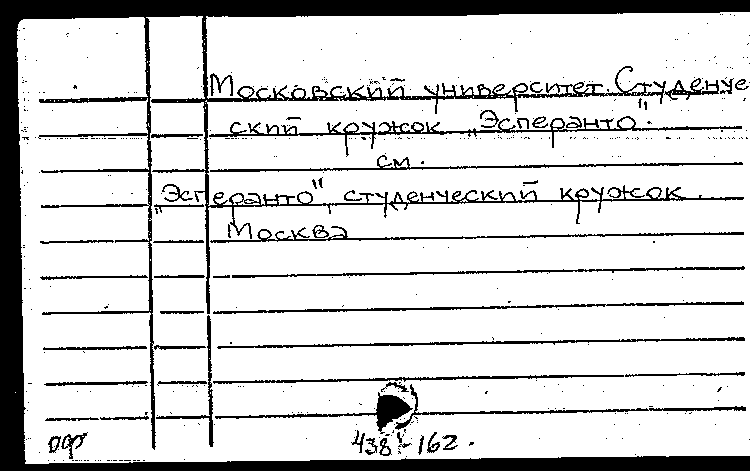 Московский университет. Студенче
ский кружок „Эсперанто".
см.
„Эсперанто", студенческий кружок.
Москва
438-162.